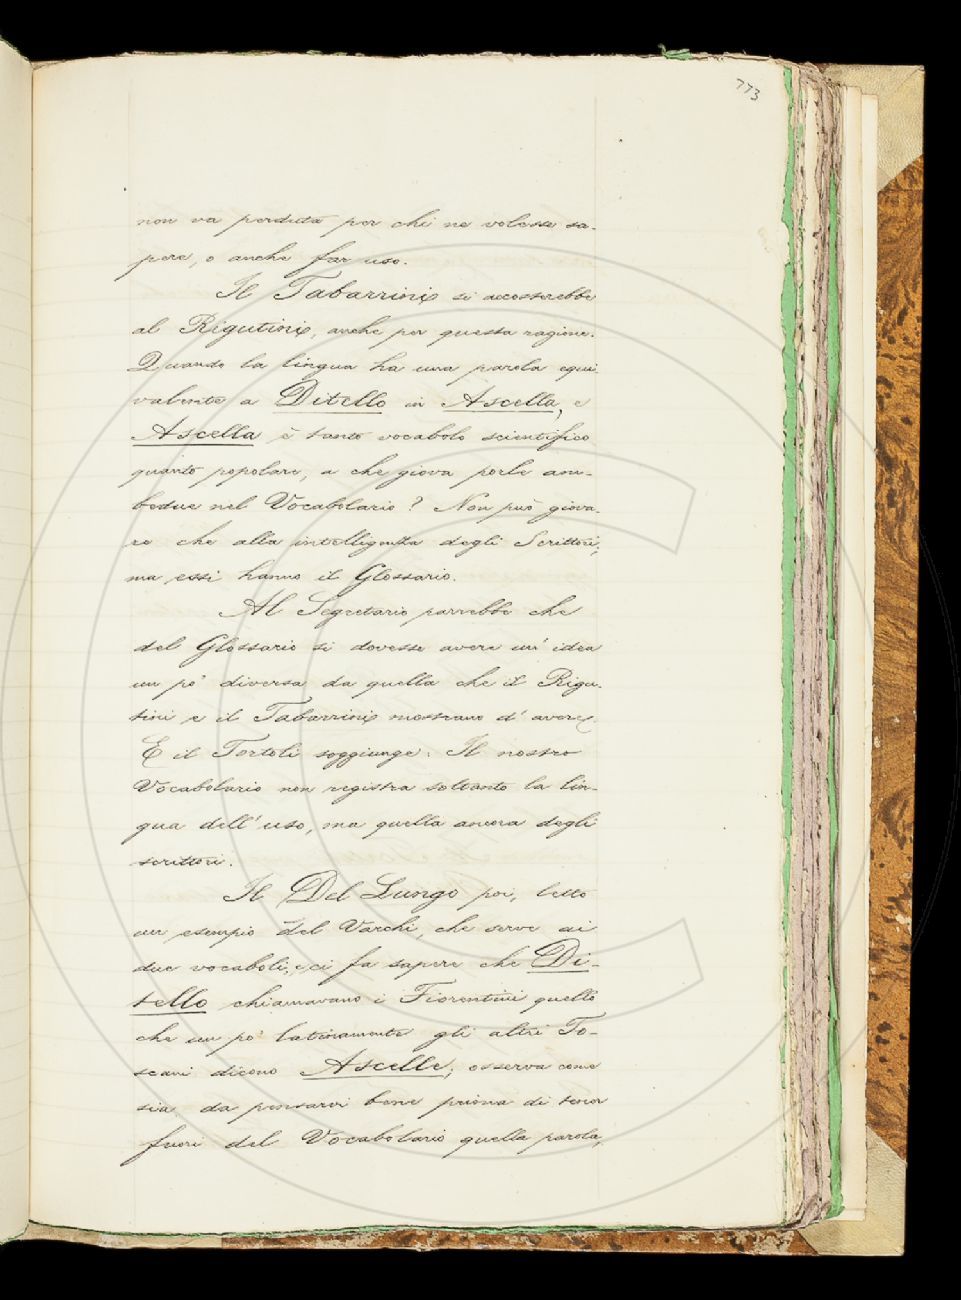 773
non va perduta per chi ne volesse sa-
pere, o anche far uso.
Il Tabarrini si accosterebbe
al Rigutini, anche per questa ragione.
Quando la lingua ha una parola equi
valente a Ditello in Ascella, e
Ascella è tanto vocabolo scientifico
quanto popolare, a che giova porle am-
bedue nel Vocabolario? Non può giova-
re che alla intelligenza degli Scrittori;
ma essi hanno il Glossario.
Al Segretario parrebbe che
del Glossario si dovesse avere un' idea
un po' diversa da quella che il Rigu-
tini e il Tabarrini mostrano d' avere.
E il Tortoli soggiunge: Il nostro
Vocabolario non registra soltanto la lin-
gua dell' uso, ma quella ancora degli
scrittori.
Il Del Lungo poi, letto
un esempio del Varchi, che serve ai
due vocaboli, e ci fa sapere che Di-
tello chiamavano i Fiorentini quello
che un po' latinamente gli altri To-
scani dicono Ascelle; osserva come
sia da pensarvi bene prima di tener
fuori del Vocabolario quella parola,